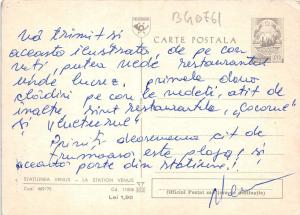 BG0761
CARTE POSTALA
Vă trimit și
aceasta ilustrată de pe care
veți putea vedé restaurantul
unde lucrez, primele două
clădiri pe care le vedeti, atît de
inalte, sînt restaurantele, "Cocorul"
și "Lucteerul"
cit de
frumoasă este plaja și
aceasta parte din stațiune!
STATIUNEA VENUS - LA STATION VENUS
Lei 1,90
(Oficiul Postal